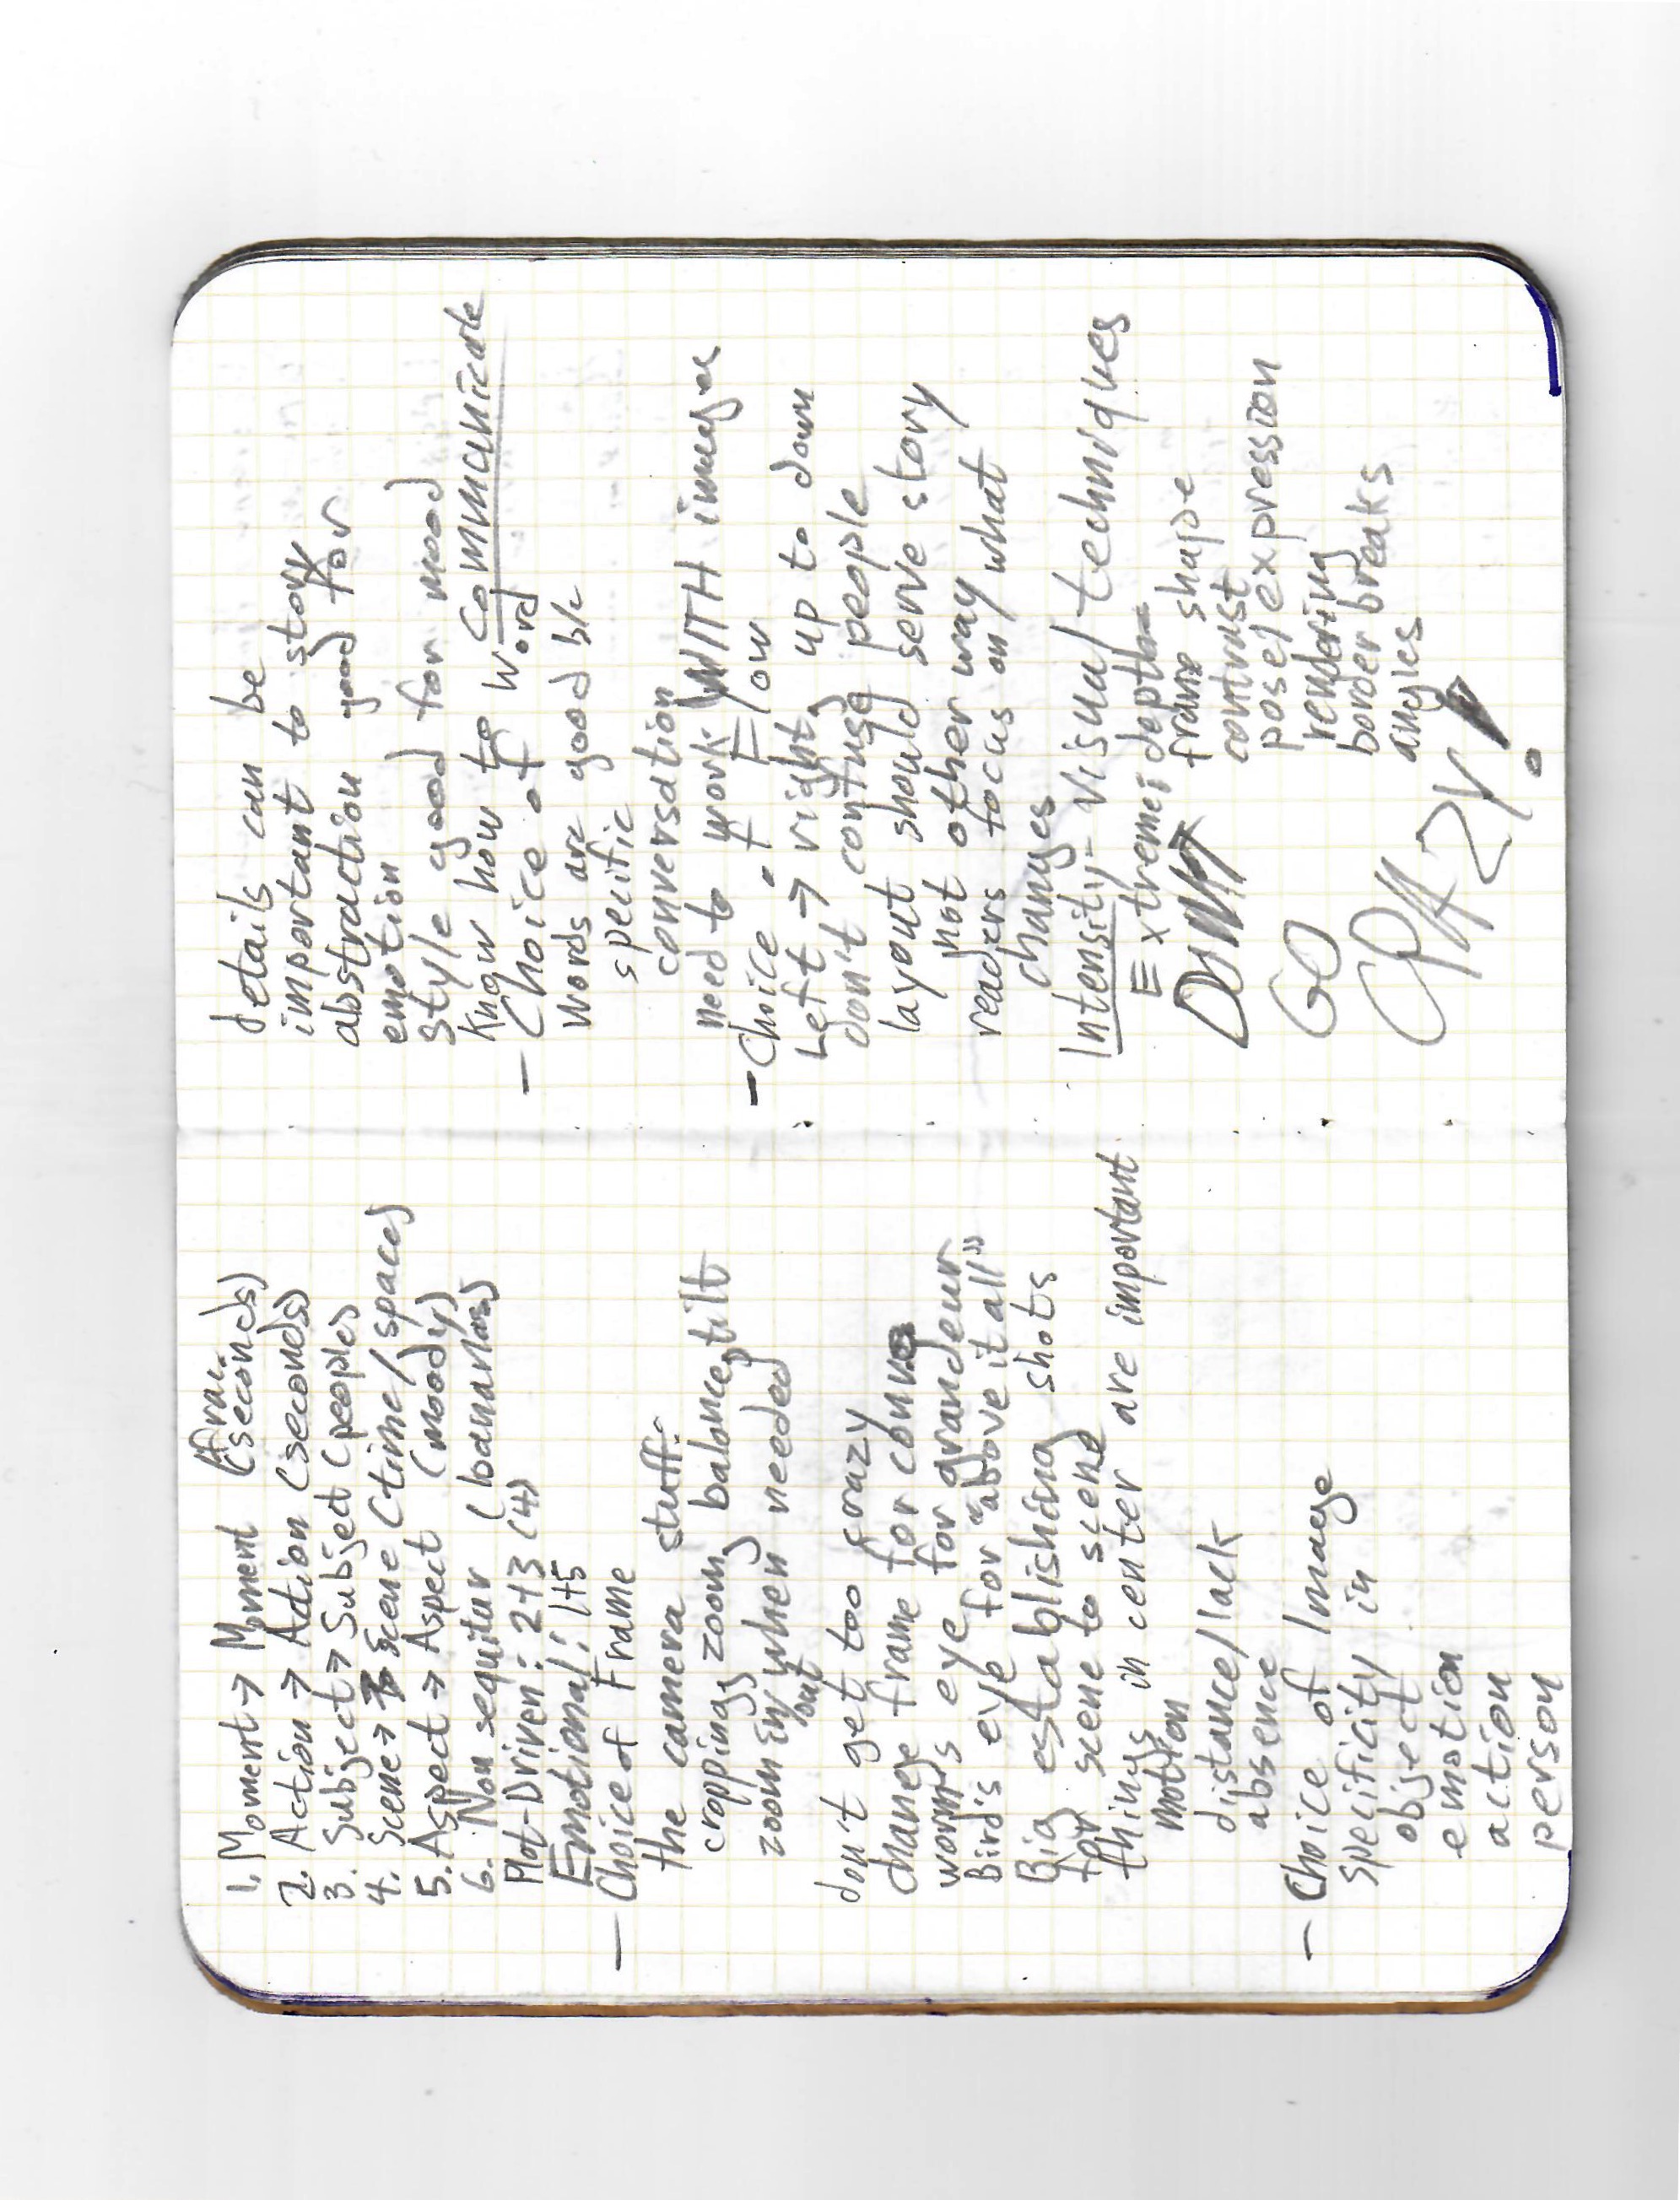 1. Moment → Moment (frac. seconds)
2. Action → Action (seconds)
3. Subject → Subject (people)
4. Scene → Scene (time/space)
5. Aspect → Aspect (moody)
6. Non sequitur (bananas)
Plot-Driven: 2+3 (4)
Emotional: 1+5
— Choice of Frame
the camera stuff:
cropping, zoom, balance, tilt
zoom in/out when needed
don't get too crazy
change frame for convo
worm's eye for grandeur
Bird's eye for "above it all"
Big establishing shots
for scene to scene
things in center are important
motion
distance/lack
absence
— Choice of Image
specificity in
object
emotion
action
person
details can be
important to story
abstraction good for
emotion
style good for mood
know how to communicate
— Choice of Word
Words are good b/c
specific
conversation
need to work WITH images
— Choice of Flow
Left → right, up to down
don't confuse people
layout should serve story
not other way
readers focus on/ what
changes
Intensity - Visual techniques
Extreme: depth
frame shape
contrast
pose/expression
rendering
border breaks
angles
DON'T
GO
CRAZY!